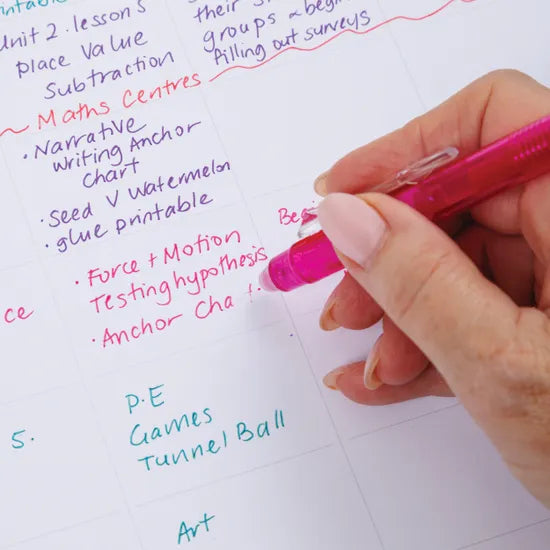 Unit 2. lesson 5
place value
Subtraction
their
groups & begin
filling out surveys
Maths Centres
• Narrative
writing Anchor
chart
• Seed V Watermelon
• glue printable
• Force + Motion
Testing hypothesis
• Anchor Cha t.
Be
ce
5.
P.E
Games
Tunnel Ball
Art